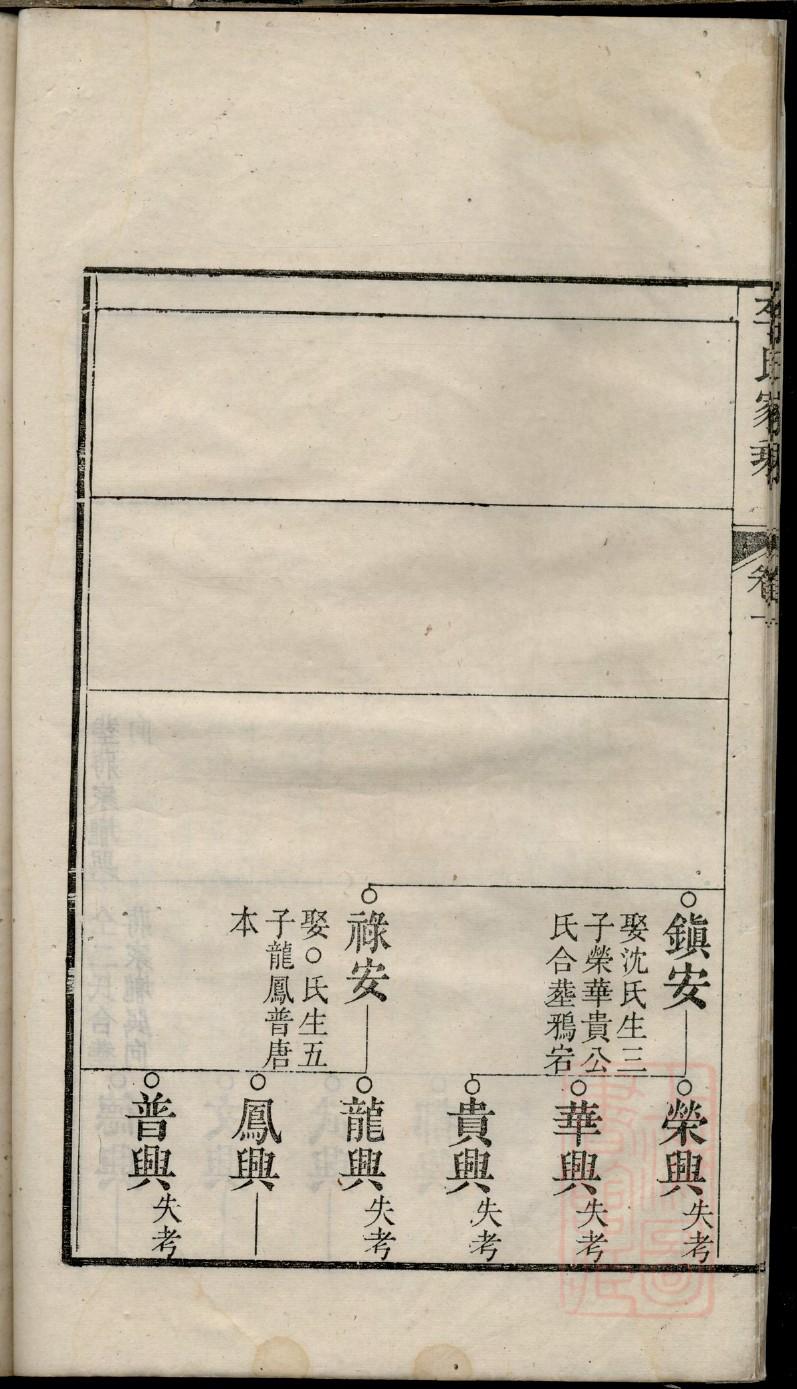 氏家
卷一
鎮安
娶沈氏生三
子榮華貴公
氏合塟鴉宕
榮興失考
華興失考
貴興失考
祿安
娶○氏生五
子龍鳳普唐
本
龍興失考
鳳興
普興失考